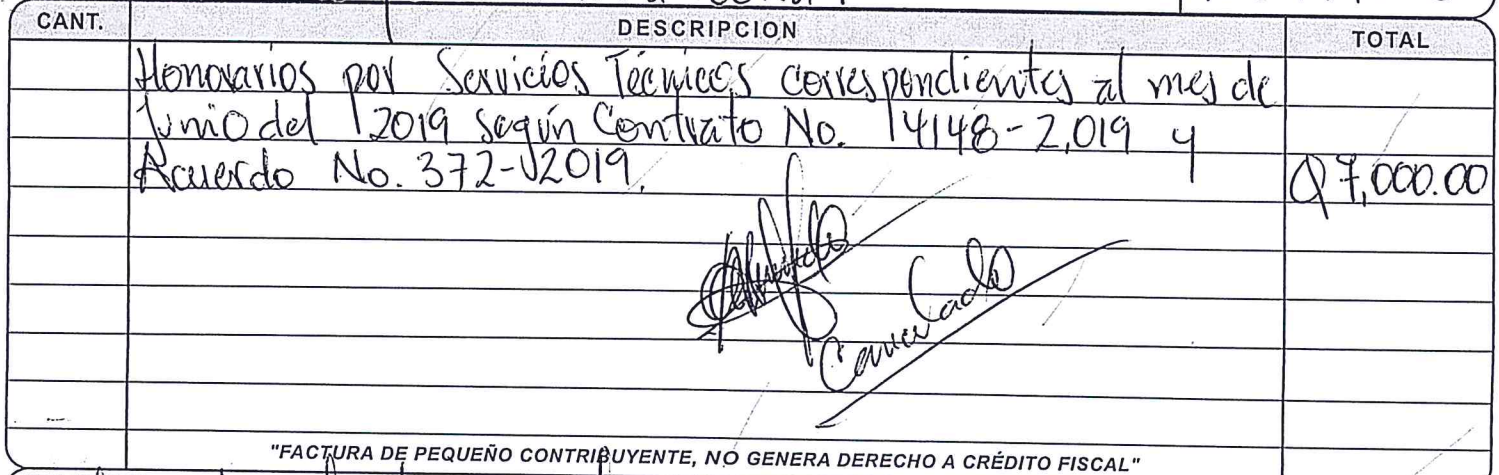 CANT. DESCRIPCION TOTAL
Honorarios por Servicios Técnicos correspondientes al mes de
Junio del 2019 según Contrato No. 14148-2,019 y
Acuerdo No. 372-2019. Q 7,000.00
Cancelado
"FACTURA DE PEQUEÑO CONTRIBUYENTE, NO GENERA DERECHO A CRÉDITO FISCAL"